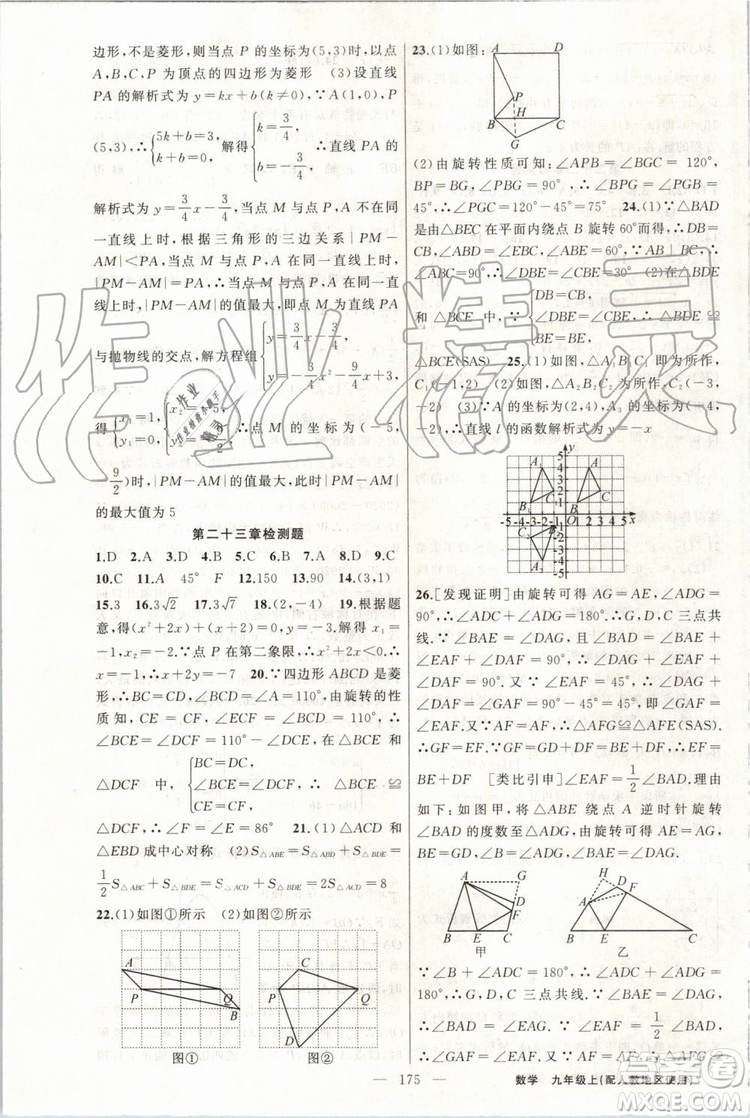 边形,不是菱形,则当点 P 的坐标为(5,3)时,以点
A,B,C,P 为顶点的四边形为菱形 (3)设直线
PA 的解析式为 y=kx+b(k≠0),∵A(1,0),P
(5,3),∴{5k+b=3, k+b=0, 解得{k=3/4, b=-3/4, ∴直线 PA 的
解析式为 y=3/4x-3/4,当点 M 与点 P,A 不在同
一直线上时,根据三角形的三边关系|PM-
AM|<PA,当点 M 与点 P,A 在同一直
线上时,|PM-AM|的值最大,即点 M 为直线 PA
与抛物线的交点,解方程组
得{x₁=1, y₁=0,
点 M 的坐标为(-5,
-9/2)时,|PM-AM|的值最大,此时|PM-AM|
的最大值为 5
第二十三章检测题
1.D 2.A 3.D 4.C 5.B 6.A 7.D 8.D 9.C
10.C 11.A 45° F 12.150 13.90 14.(3,1)
15.3 16.3√2 17.√2 18.(2,-4) 19.根据题
意,得(x²+2x)+(x+2)=0,解得 x₁=
-1,x₂=-2.∵点 P 在第二象限,∴x<0,∴x=-1,∴
x+y=-7 20.∵四边形 ABCD 是菱
形,∴BC=CD,∠BCD=∠A=110°,由旋转的性
质知,CE=CF,∠ECF=∠BCD=110°,∴
∠BCE=∠DCF=110°-∠DCE,在△BCE 和
△DCF 中,{BC=DC, ∠BCE=∠DCF, CE=CF, ∴△BCE≌
△DCF,∴∠F=∠E=86° 21.(1)△ACD 和
△EBD 成中心对称
22.(1)如图①所示 (2)如图②所示
A
P
Q
B
图①
C
P
Q
D
图②
23.(1)如图:
A
D
P
H
B
C
G
(2)由旋转性质可知:∠APB=∠BGC=120°,
BP=BG,∠PBG=90°,∴∠BGP=∠BPG=
45°,∴∠PGC=120°-45°=75° 24.(1)∵△BAD
是由△BEC 在平面内绕点 B 旋转 60°而得,∴DB=
CB,∠ABD=∠EBC,∠ABE=60°,∵
∠ABC=90°,∴∠DBE=∠CBE=30° (2)在△DBE
和△BCE 中,∵{DB=CB, ∠DBE=∠CBE, BE=BE, ∴△DBE≌
△BCE(SAS) 25.(1)如图,△A₁B₁C₁ 即为所作,
C₁(-1,2) (2)如图,△A₂B₂C₂ 即为所作,C₂(-3,
-2) (3)∵A 的坐标为(2,4),A₃ 的坐标为(-4,
-2),∴直线 l 的函数解析式为 y=-x
26.[发现证明]由旋转可得 AG=AE,∠ADG=
90°,∴∠ADC+∠ADG=180°,G,D,C 三点共
线.∵∠BAE=∠DAG,∠EAF=45°,∴
∠GAF=∠EAF=45°.
∠EAF.又∵AF=AF,∴△AFG≌△AFE(SAS).
∴GF=EF.∵GF=DG+DF=BE+DF,∴EF=
BE+DF [类比引申]∠EAF=1/2∠BAD.理由
如下:如图甲,将△ABE 绕点 A 逆时针旋转
∠BAD 的度数至△ADG.由旋转可得 AE=AG,
∠BAE=∠DAG,BE=DG,∠B=∠ADG.
A
G
D
F
B
E
C
甲
H
D
F
A
B
E
C
乙
∵∠B+∠ADC=180°,∴∠ADC+∠ADG=
180°,∴G,D,C 三点共线.∵∠BAE=∠DAG,∴
∠BAD=∠EAG.∵∠EAF=1/2∠BAD,∴
∠GAF=∠EAF=1/2∠EAG.又∵AF=AF,
— 175 —
数学 九年级上(配人教地区使用)